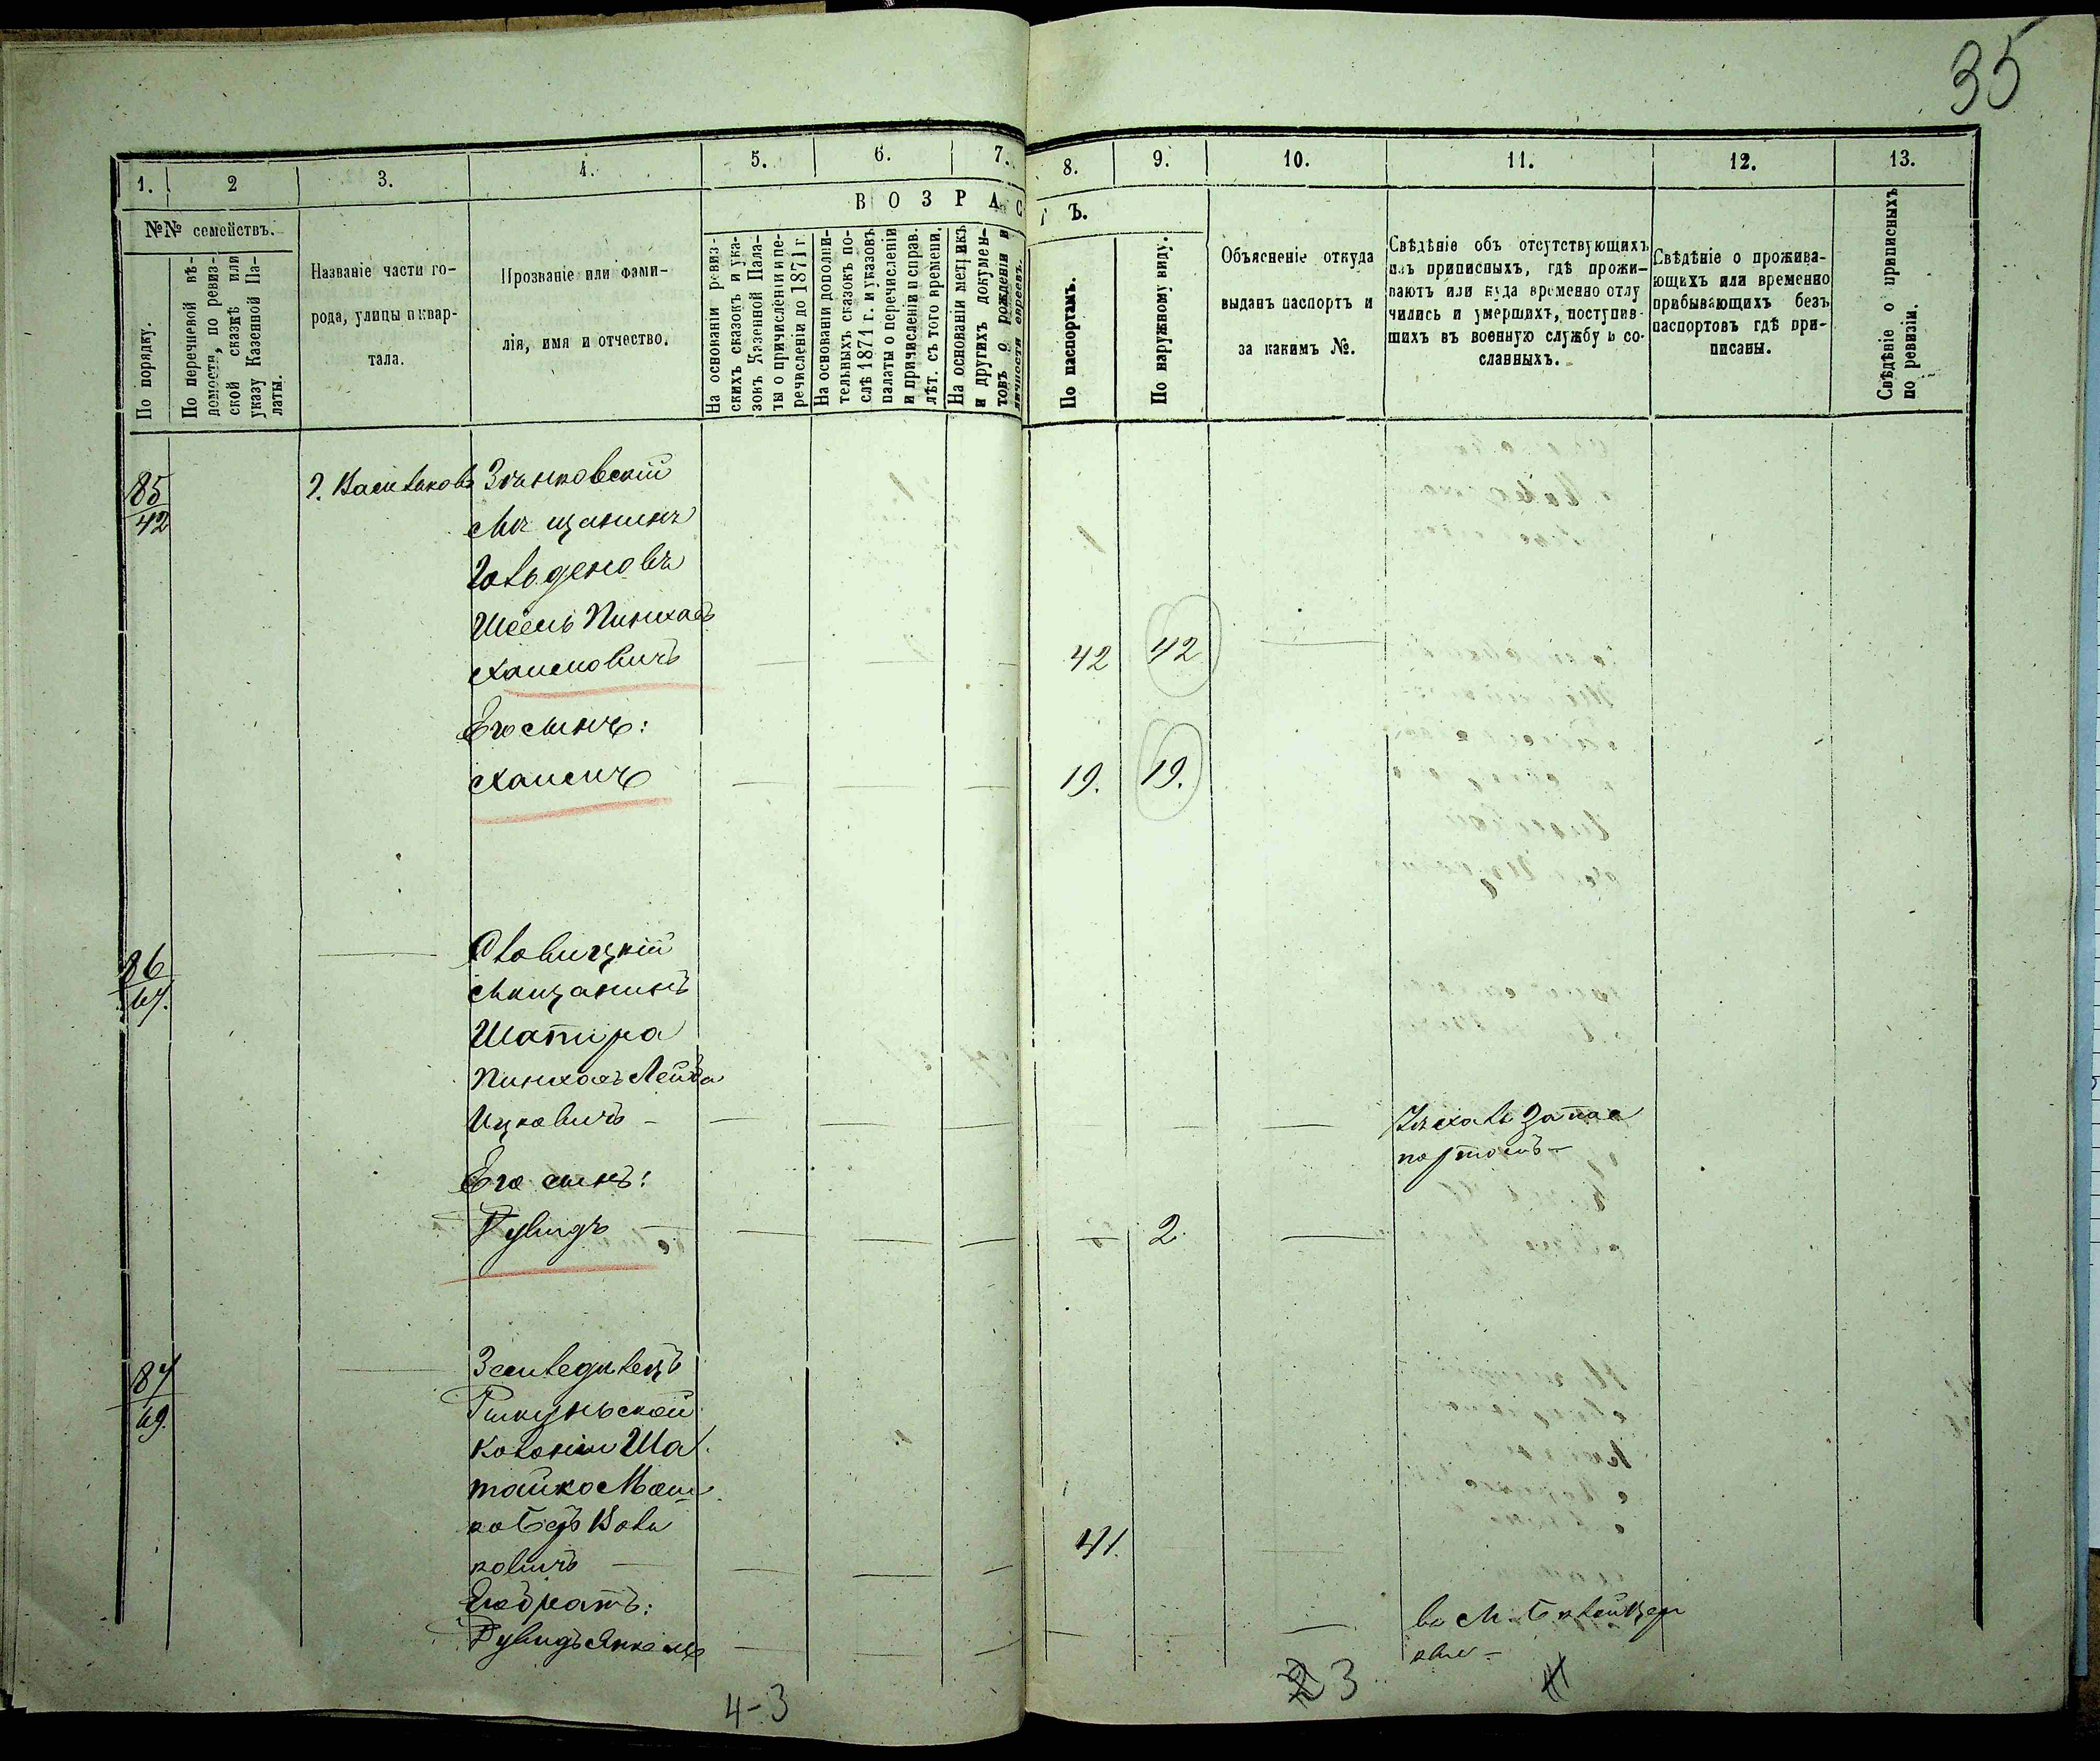 35
1.
2
3.
4.
5.
6.
7.
8.
9.
10.
11.
12.
13.
№№ семействъ.
По порядку.
По перечневой вѣ-
домости, по ревиз-
ской сказкѣ или
указу Казенной Па-
латы.
Названіе части го-
рода, улицы и квар-
тала.
Прозваніе или фами-
лія, имя и отчество.
ВОЗРАСТЪ.
На основаніи ревиз-
скихъ сказокъ и ука-
зокъ Казенной Пала-
ты о причисленіи и пе-
речисленіи до 1871 г.
На основаніи дополни-
тельныхъ сказокъ по-
слѣ 1871 г. и указовъ
палаты о перечисленіи
и причисленіи и справ.
лѣт. съ того времени.
На основаніи метрикъ
и другихъ докумен-
товъ о рожденіи и
личности евреевъ.
По паспортамъ.
По наружному виду.
Объясненіе откуда
выданъ паспортъ и
за какимъ №.
Свѣдѣніе объ отсутствующихъ
изъ приписныхъ, гдѣ прожи-
ваютъ или куда временно отлу
чились и умершихъ, поступив-
шихъ въ военную службу и со-
сланныхъ.
Свѣдѣніе о прожива-
ющихъ или временно
прибывающихъ безъ
паспортовъ гдѣ при-
писаны.
Свѣдѣніе о приписныхъ
по ревизіи.
85
42
г. Васильковъ
Зѣньковскій
Мѣщанинъ
Гольденовъ
Пинхасъ
Хаимовичъ
42
42
Его сынъ:
Хаимъ
19.
19.
86
67.
Мѣщанинъ
Шапира
Пинхасъ Лейба
Ицковичъ
Уѣхалъ за пас
портомъ
Его сынъ:
Рувидъ
2
87
69.
Земледѣлецъ
колоніи Ша
ковичъ
41.
Его братъ:
4-3
3